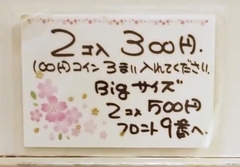 2コ入 300円.
(100円)コイン3まい入れてください.
Bigサイズ
2コ入 500円
フロント9番へ.